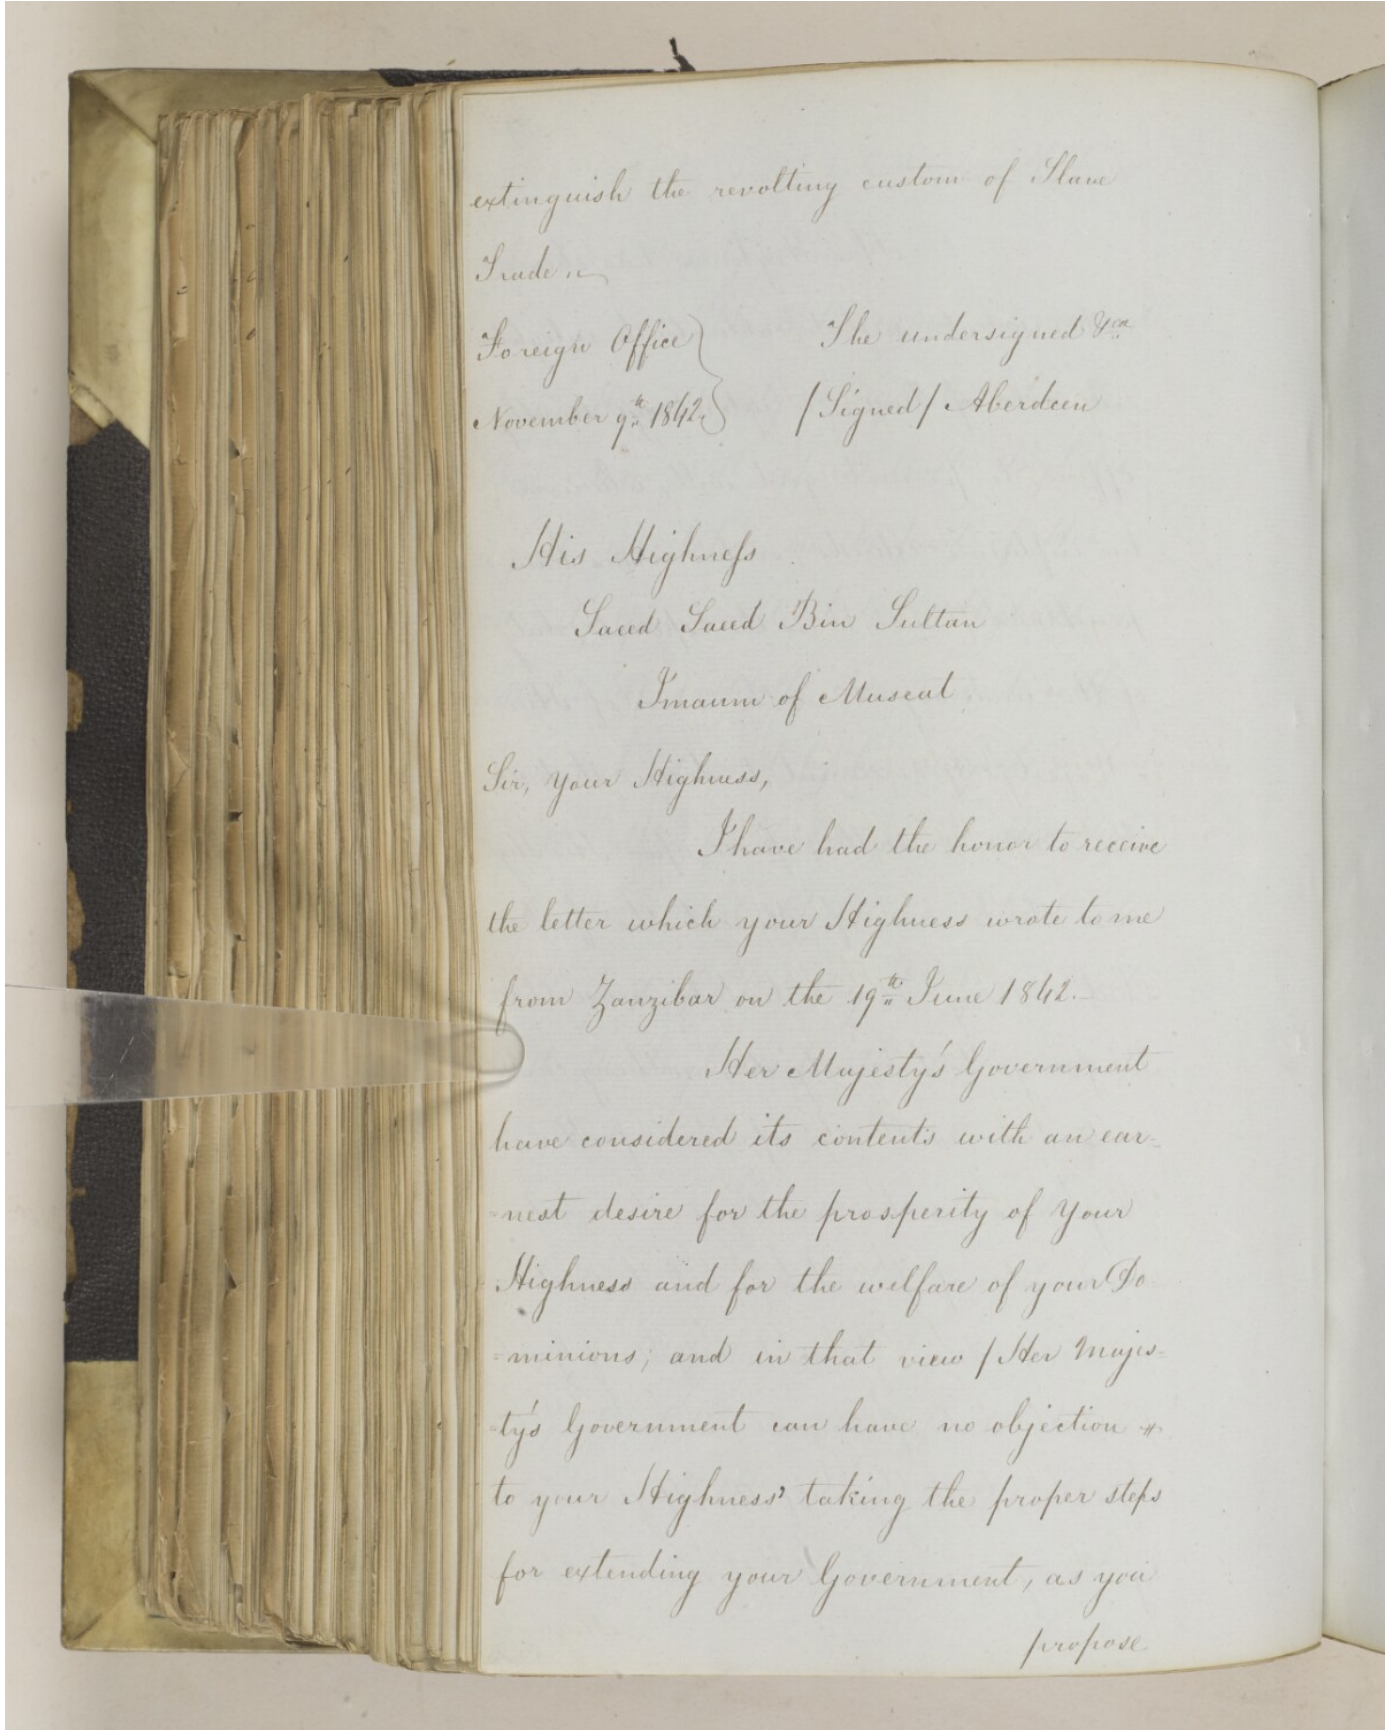 extinguish the revolting custom of Slave
Trade
Foreign Office
November 9th 1842
The undersigned &ca
/Signed/ Aberdeen
His Highneſs
Saeed Saeed Bin Sultan
Imaum of Muscat
Sir, your Highness,
I have had the honor to receive
the letter which your Highness wrote to me
from Zanzibar on the 19th June 1842.
Her Majesty's Government
have considered its contents with an ear-
-nest desire for the prosperity of your
Highness and for the welfare of your Do
=minions; and in that view / Her Majes=
-ty's Government can have no objection
to your Highness' taking the proper steps
for extending your Government, as you
propose